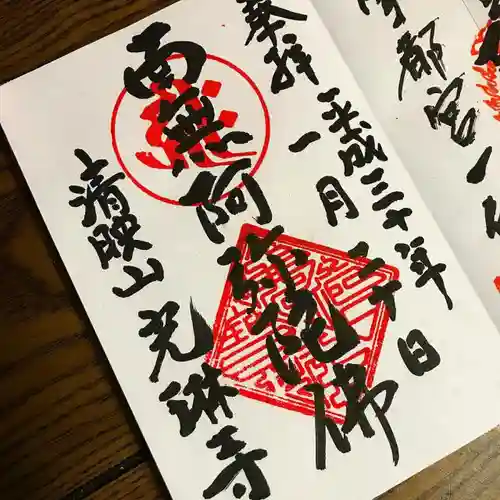 奉拝
平成三十年
一月 日
南無阿弥陀佛
清映山 光琳寺
都宮